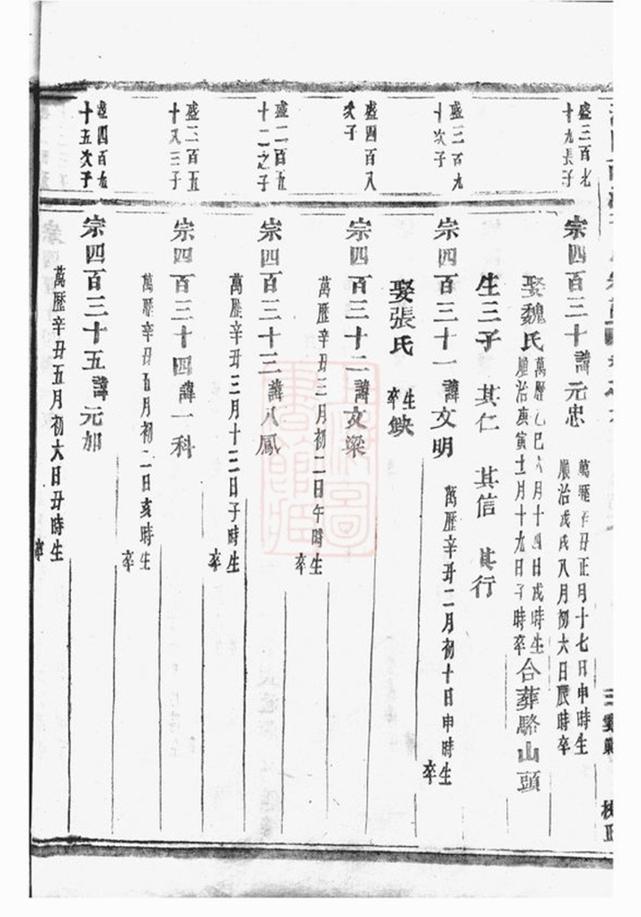 盛三百九
十九長子
宗四百三十諱元忠
萬曆辛丑正月十七日申時生
順治戊戌八月初六日辰時卒
娶魏氏
萬曆乙巳六月十四日戌時生
順治庚寅十二月十九日子時卒
合葬駱山頭
生三子 其仁 其信 其行
盛三百九
十次子
宗四百三十一諱文明
萬曆辛丑二月初十日申時生
卒
娶張氏
生
卒
缺
盛四百又
次子
宗四百三十二諱文梁
萬曆辛丑三月初二日午時生
卒
盛二百五
十二之子
宗四百三十三諱八鳳
萬曆辛丑三月十二日子時生
卒
盛三百五
十又三子
宗四百三十四諱一科
萬曆辛丑五月初二日亥時生
卒
盛四百九
十五次子
宗四百三十五諱元加
萬曆辛丑五月初六日丑時生
卒